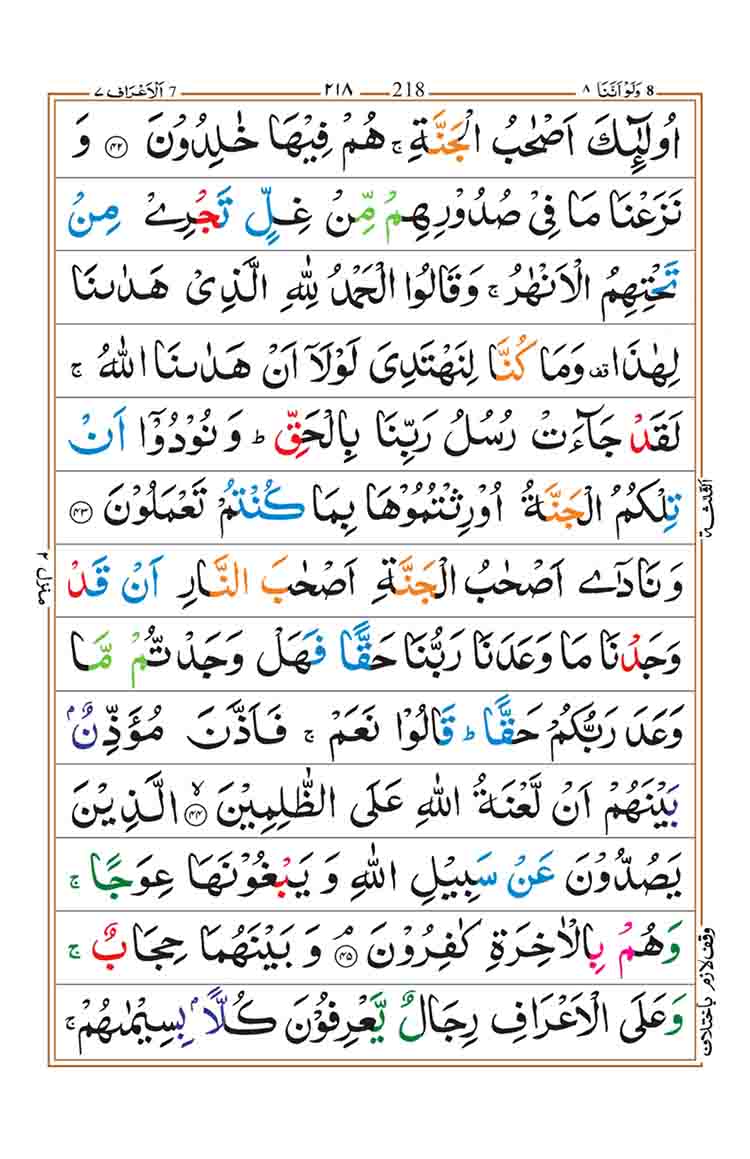 7 اَلْاَعْرَاف ٧ ٢١٨ 218 وَلَوْ اَنَّنَا ٨ 8
اُولٰٓئِكَ اَصْحٰبُ الْجَنَّةِ ۚ هُمْ فِيْهَا خٰلِدُوْنَ ﴿۴۲﴾ وَ
نَزَعْنَا مَا فِيْ صُدُوْرِهِمْ مِّنْ غِلٍّ تَجْرِيْ مِنْ
تَحْتِهِمُ الْاَنْهٰرُ ۚ وَقَالُوا الْحَمْدُ لِلّٰهِ الَّذِيْ هَدٰىنَا
لِهٰذَا قف وَمَا كُنَّا لِنَهْتَدِيَ لَوْلَآ اَنْ هَدٰىنَا اللّٰهُ ۚ
لَقَدْ جَآءَتْ رُسُلُ رَبِّنَا بِالْحَقِّ ؕ وَ نُوْدُوْٓا اَنْ
تِلْكُمُ الْجَنَّةُ اُوْرِثْتُمُوْهَا بِمَا كُنْتُمْ تَعْمَلُوْنَ ﴿۴۳﴾
وَ نَادٰٓى اَصْحٰبُ الْجَنَّةِ اَصْحٰبَ النَّارِ اَنْ قَدْ
وَجَدْنَا مَا وَعَدَنَا رَبُّنَا حَقًّا فَهَلْ وَجَدْتُّمْ مَّا
وَعَدَ رَبُّكُمْ حَقًّا ؕ قَالُوْا نَعَمْ ۚ فَاَذَّنَ مُؤَذِّنٌۢ
بَيْنَهُمْ اَنْ لَّعْنَةُ اللّٰهِ عَلَى الظّٰلِمِيْنَ ﴿۴۴﴾ ۙ الَّذِيْنَ
يَصُدُّوْنَ عَنْ سَبِيْلِ اللّٰهِ وَ يَبْغُوْنَهَا عِوَجًا ۚ
وَهُمْ بِالْاٰخِرَةِ كٰفِرُوْنَ ﴿۴۵﴾ ۘ وَ بَيْنَهُمَا حِجَابٌ ۚ
وَعَلَى الْاَعْرَافِ رِجَالٌ يَّعْرِفُوْنَ كُلًّاۢ بِسِيْمٰىهُمْ ۚ
منزل ۲
وقف لازم باختلاف